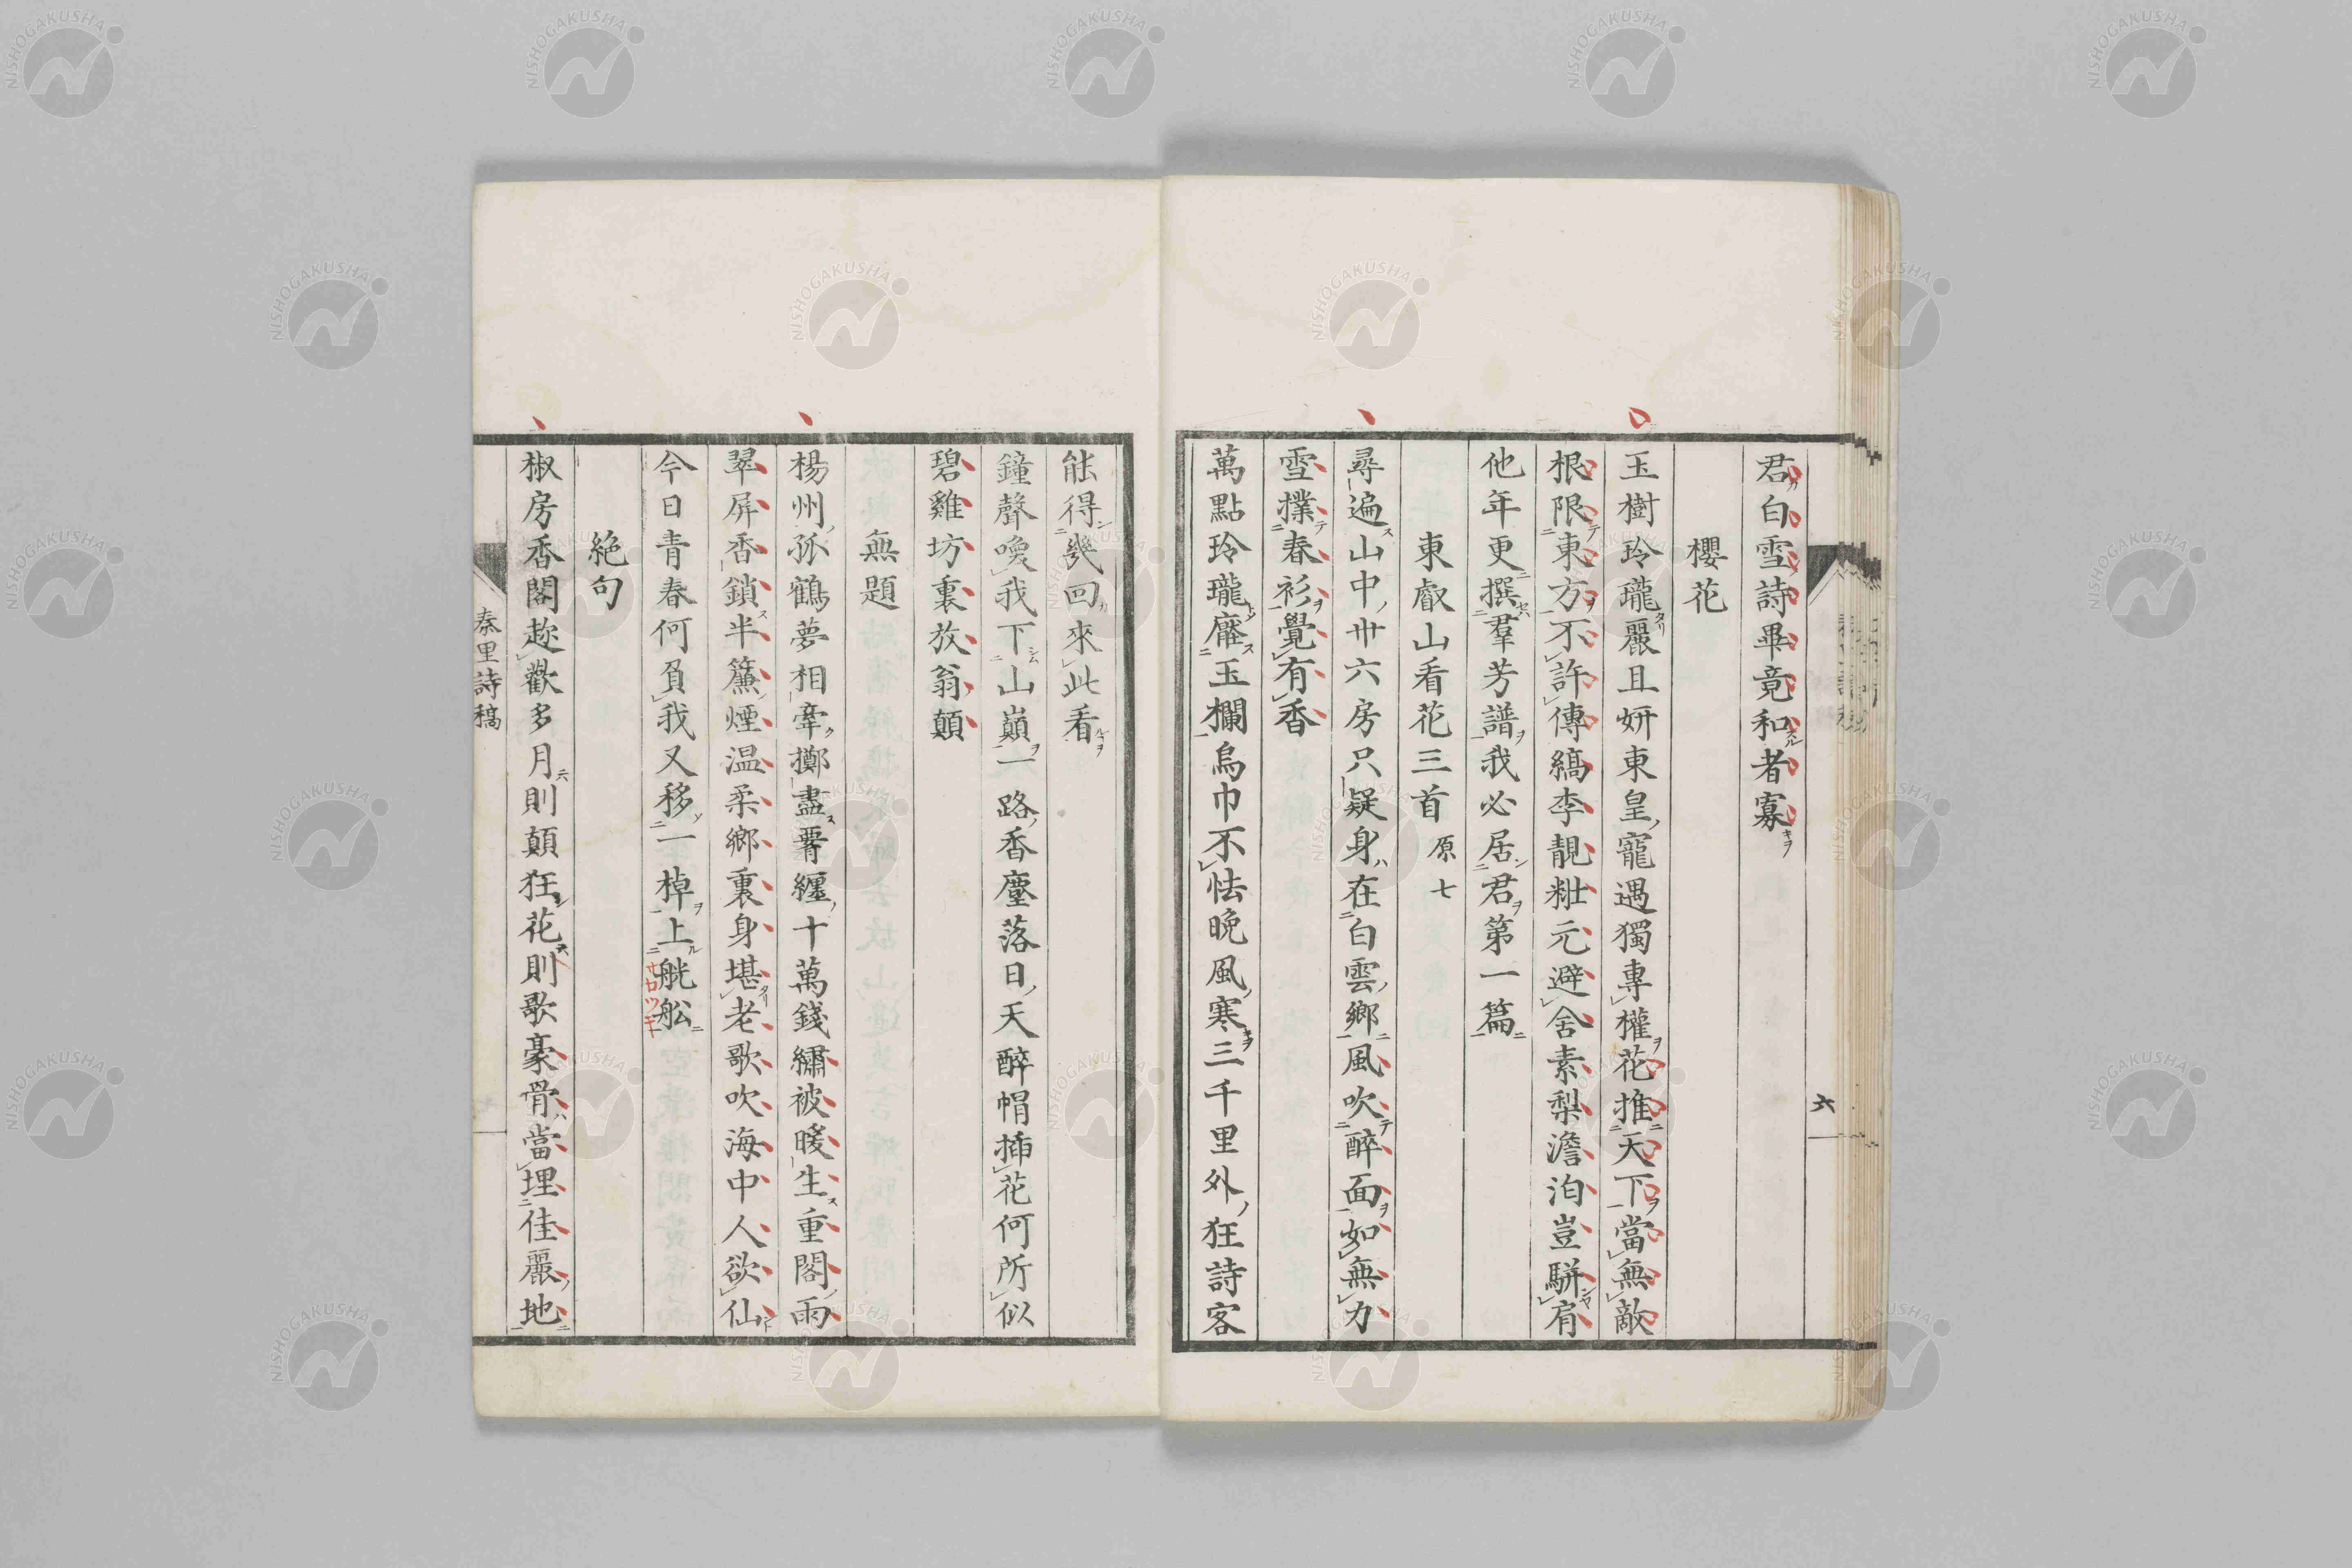 君白雪詩畢竟和者寡
櫻花
玉樹玲瓏麗且妍東皇寵遇獨專權花推天下當無敵
根限東方不許傳縞李靚粧元避舍素梨澹泊豈駢肩
他年更撰羣芳譜我必居君第一篇
東叡山看花三首原七
尋遍山中卅六房只疑身在白雲鄉風吹醉面如無力
雪撲春衫覺有香
萬點玲瓏壓玉欄烏巾不怯晚風寒三千里外狂詩客
六
能得幾回來此看
鐘聲喚我下山巔一路香塵落日天醉帽插花何所似
碧雞坊裏放翁顛
無題
楊州孤鶴夢相牽擲盡腰纏十萬錢繡被暖生重閣雨
翠屏香鎖半簾煙温柔鄉裏身堪老歌吹海中人欲仙
今日青春何負我又移一棹上觥船
絶句
椒房香閣趂歡多月則顛狂花則歌豪骨當埋佳麗地
秦里詩稿
NISHOGAKUSHA